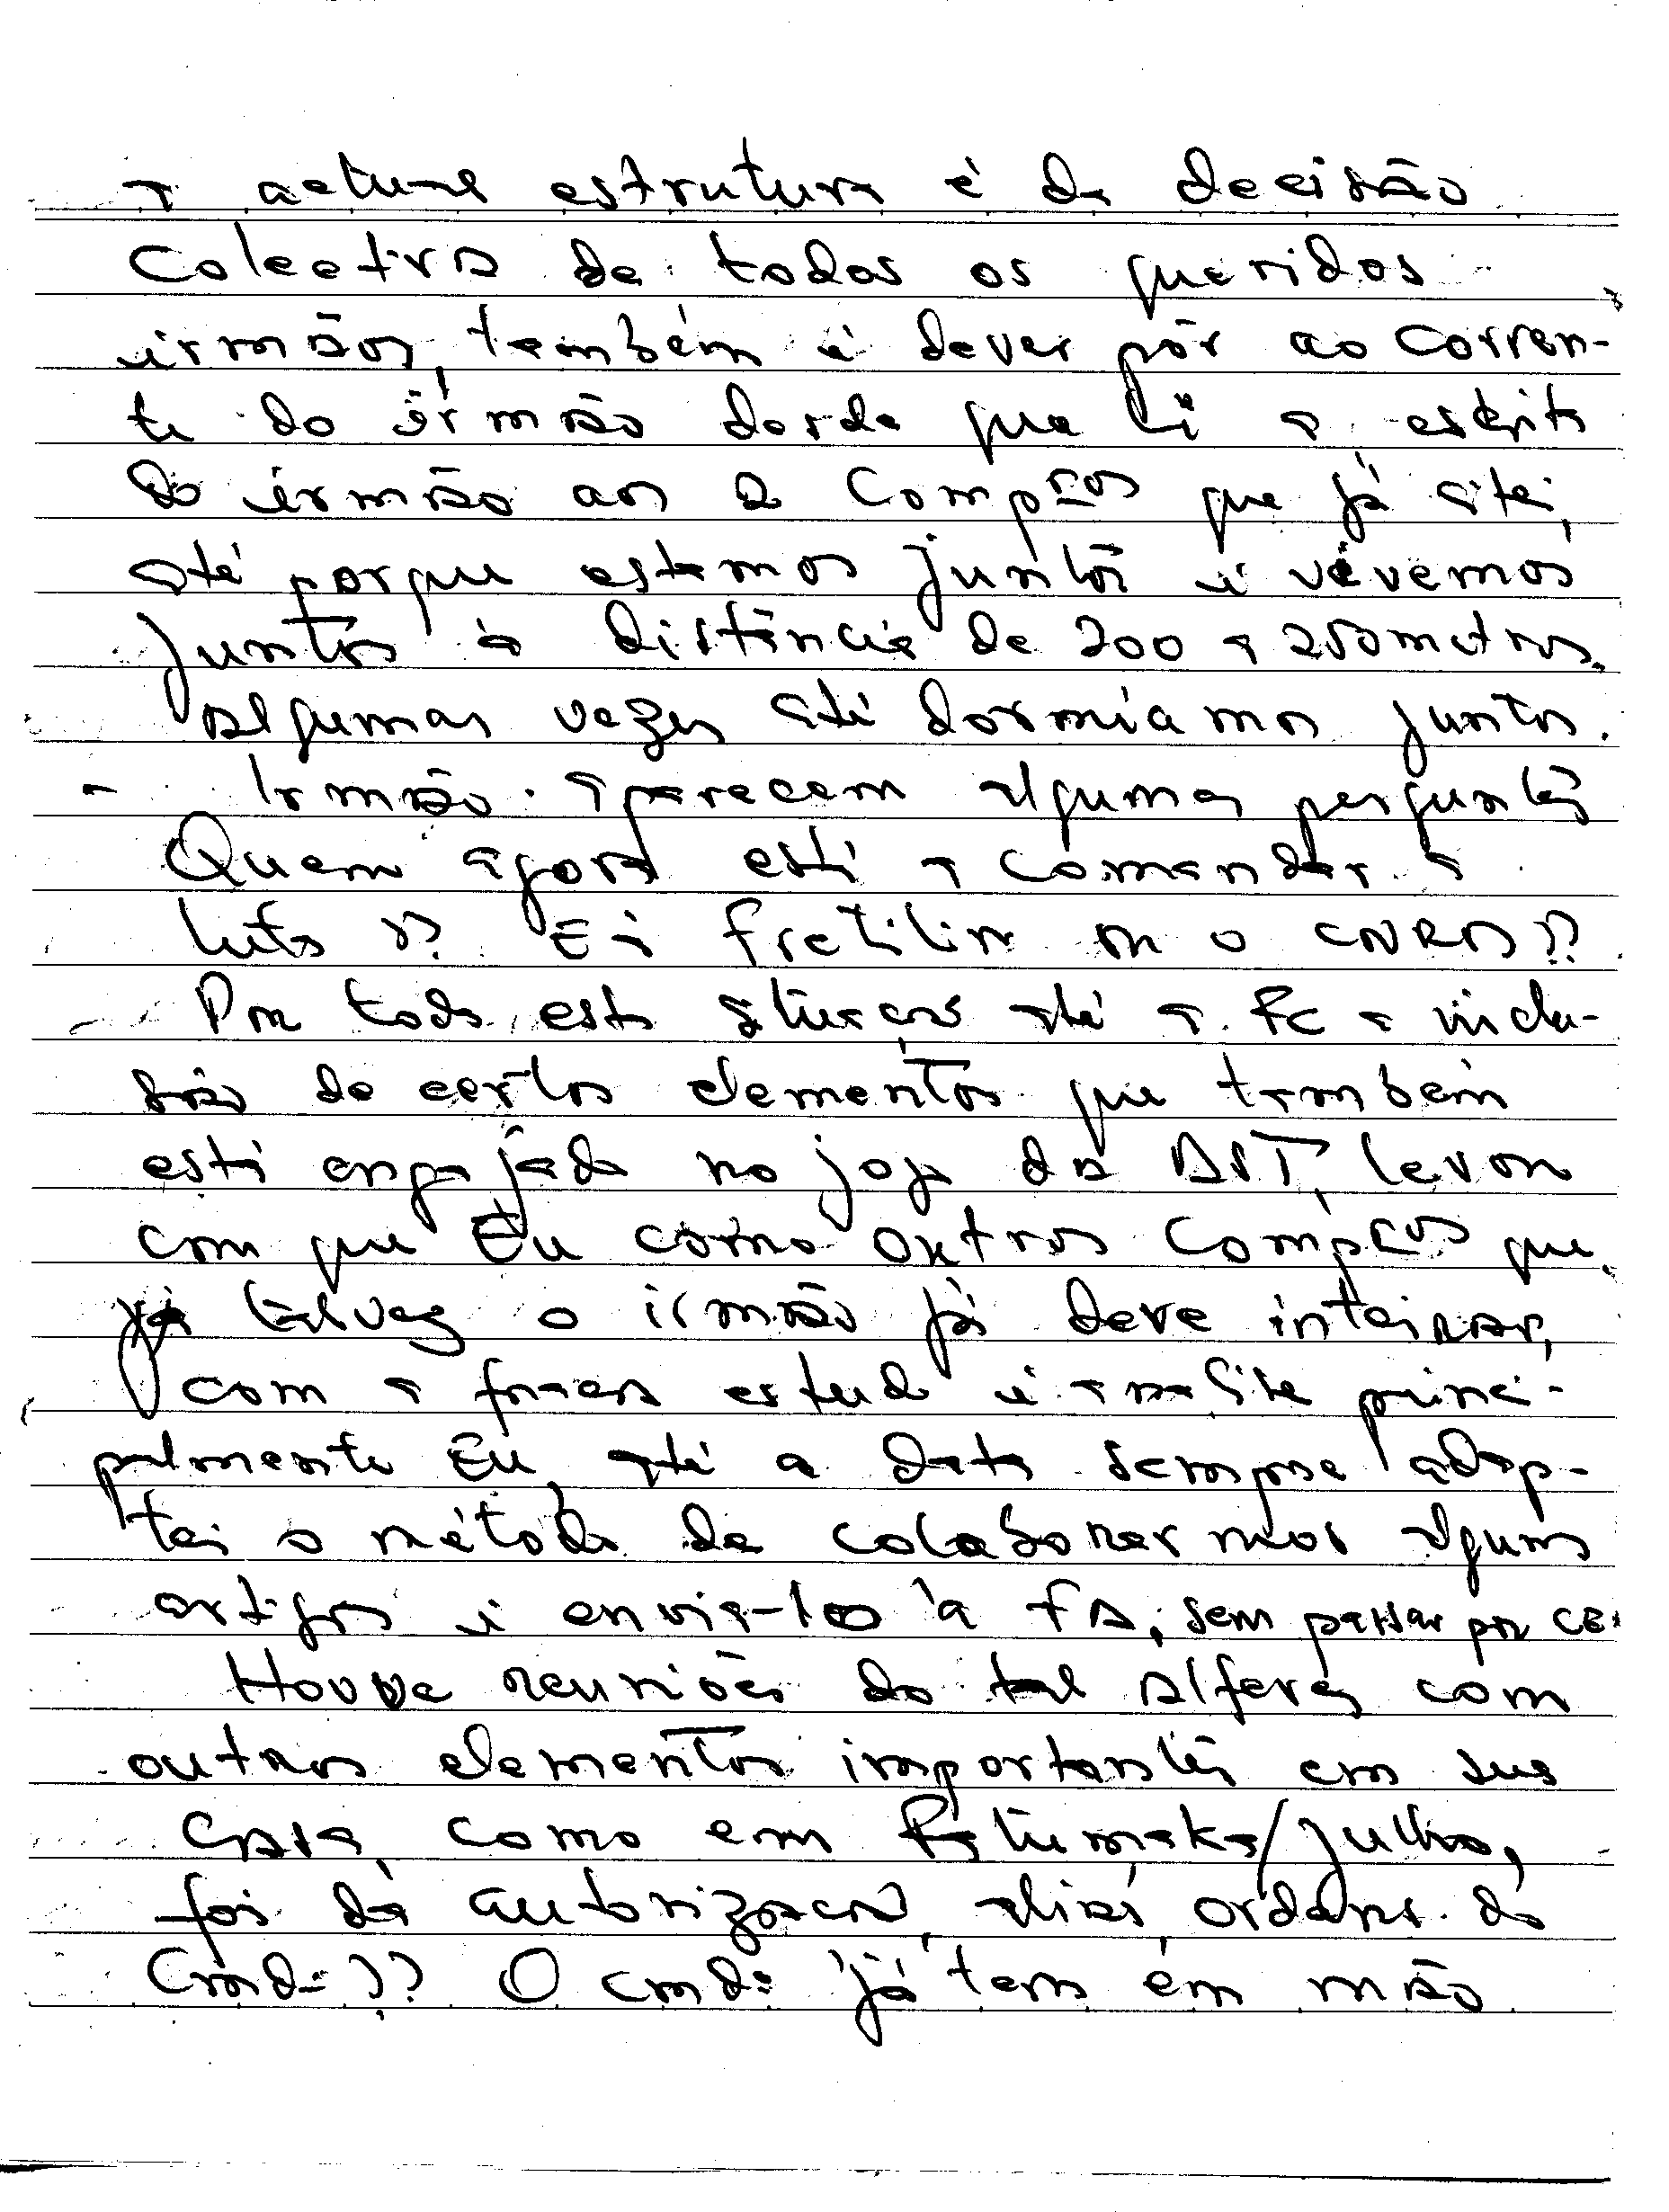 a actual estrutura é da decisão
Colectiva de todos os queridos
irmãos, também é dever pôr ao corren-
te do irmão desde que li a escrita
do irmão aos 2 Compros que já citei,
até porque estamos juntos e vivemos
juntos à distância de 200 a 250 metros.
Algumas vezes até dormíamos juntos.
- Irmão. Aparecem algumas perguntas
Quem agora está a comandar a
luta?? É a Fretilin ou o CNRM??
Por toda esta situação até a FC a inclu-
são de certos elementos que também
está engajada no jogo da AST, levou
com que Eu como outros Compros que
já talvez o irmão já deve inteirar,
com a estudo e análise princi-
palmente Eu, até a data sempre adop-
tei o método de colaborarmos alguns
artigos e enviá-loo à FA, sem passar por CE.
Houve reuniões do tal Alferes com
outros elementos importantes em sua
Casa, como em /Julho,
foi da autorização, aliás, ordens do
Cmd-?? O cmd- já tem em mão